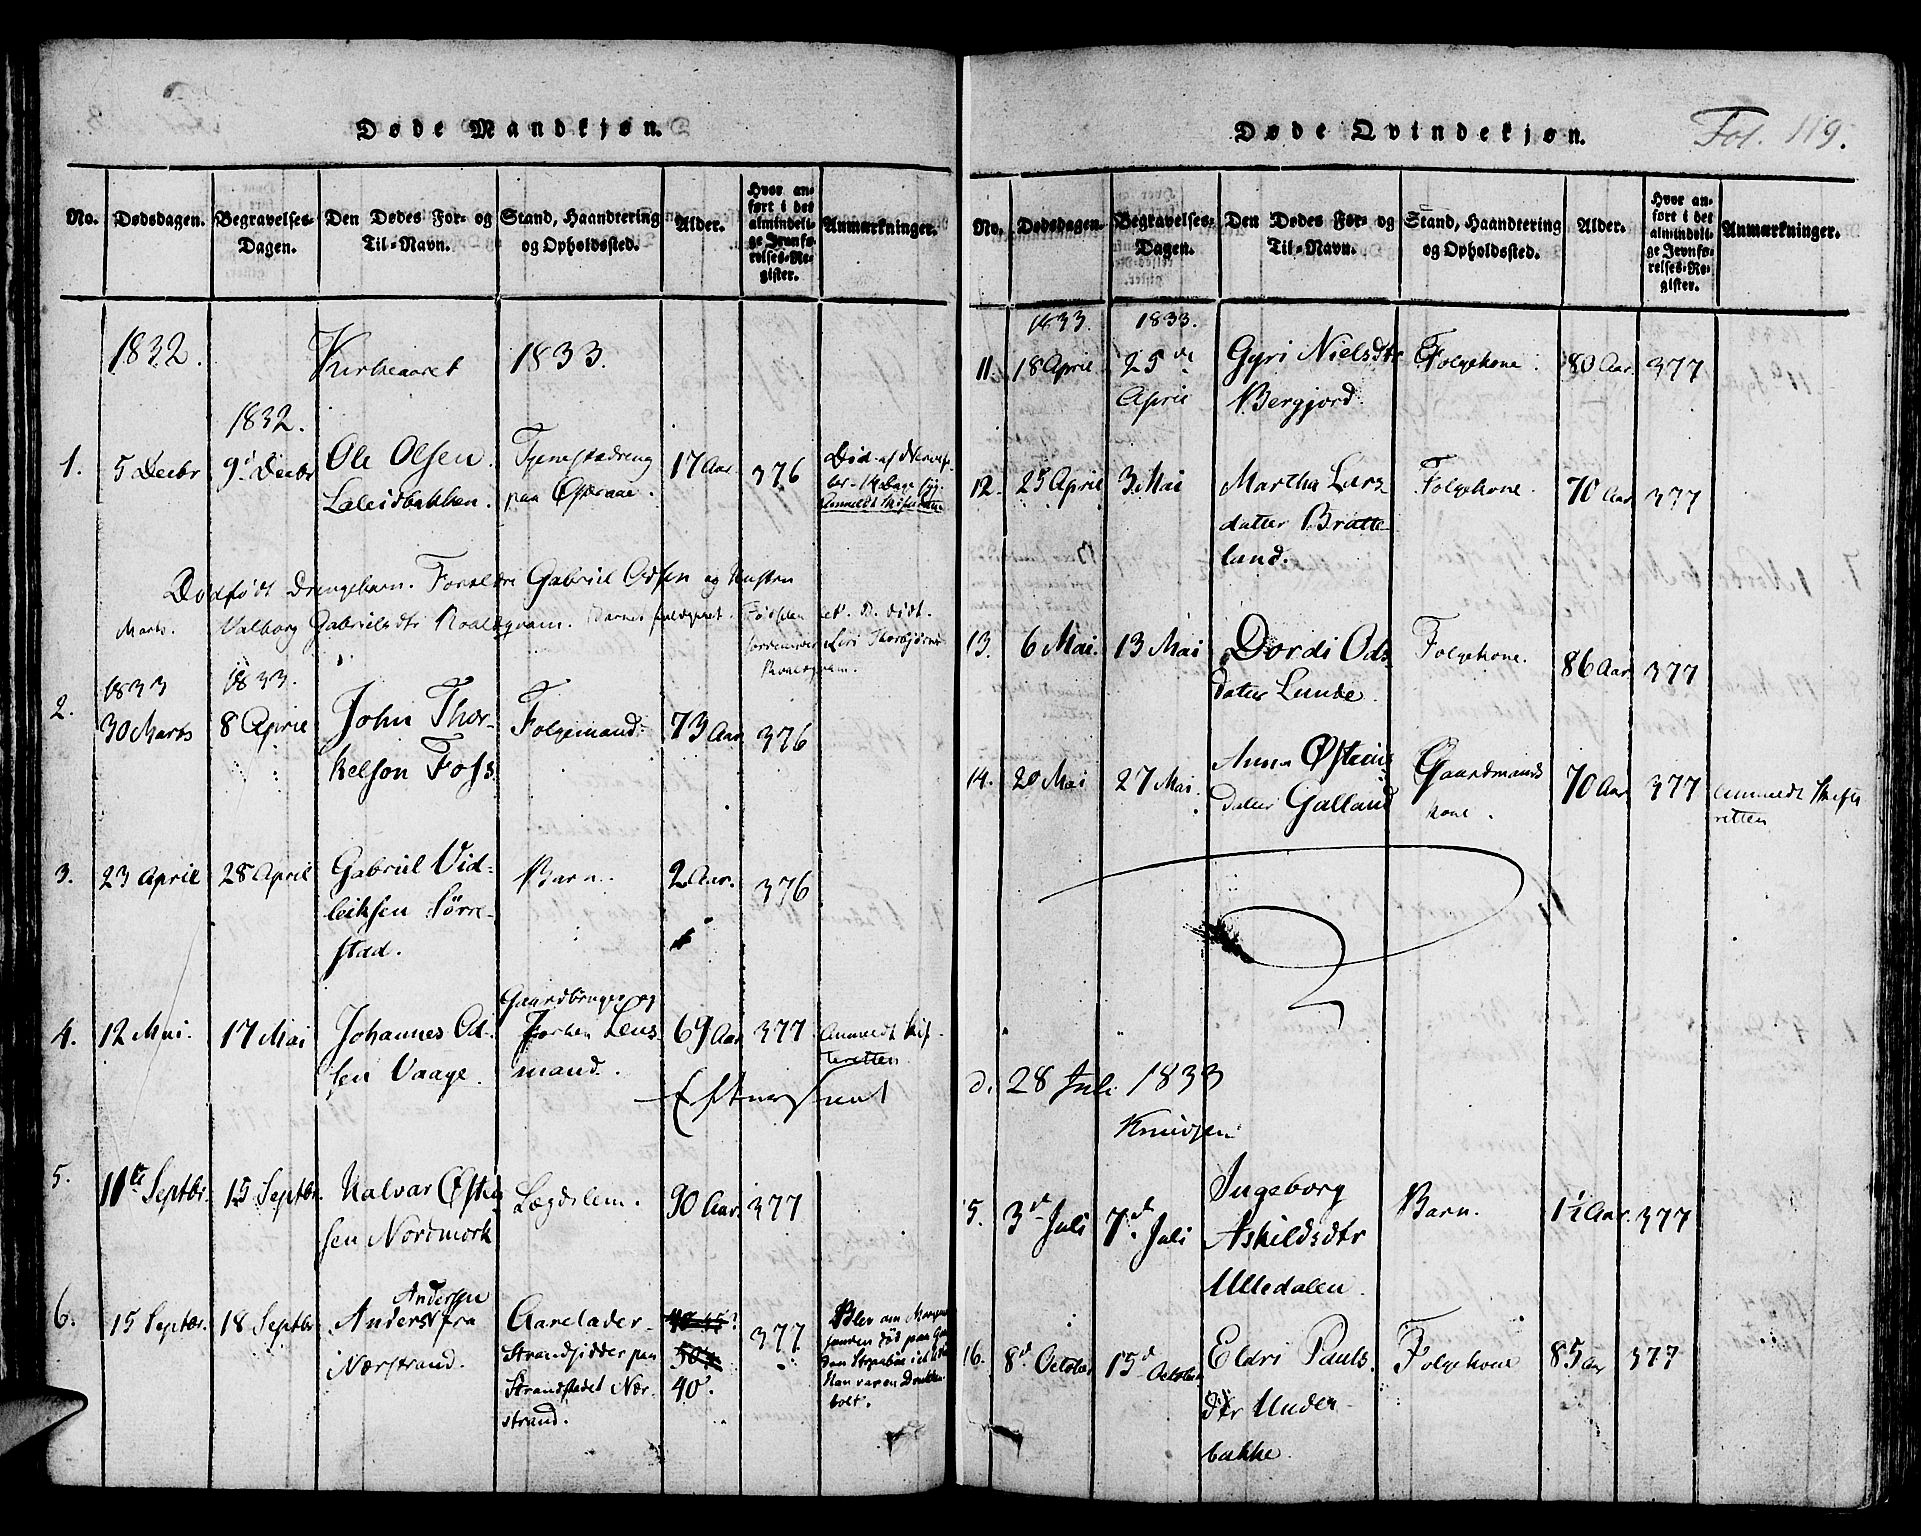 Døde Mandkjøn.
No.
Dødsdagen.
Begravelses-
Dagen.
Den Dødes For- og
Til-Navn.
Stand, Haandtering
og Opholdssted.
Alder.
Hvor an-
ført i det
almindeli-
ge Jevnfø-
relses-Re-
gister.
Anmærkninger.
1832.
Kirkeaaret
1833.
1832.
1.
5 Decbr
9d Decbr
Ole Olsen
Laleidbakken.
Tjenestedreng
paa
17 Aar
376
Død af Nervefe-
ber
Anmeldt Skifteretten
Dødfødt Drengebarn. Forældre Gabriel Odsen og
Marts.
Valborg Gabrielsdtr
1833
1833.
2.
30 Marts
8 April
John Thor-
kelson Foss
Folgemand.
73 Aar
376
3.
23 April
28 April
Gabriel Vid-
leiksen Sørre-
stad.
Barn.
2 Aar.
376
4.
12 Mai.
17 Mai
Johannes Od-
sen Vaage.
Gaardbruger og
forhen Lens-
mand.
69 Aar
377
Anmeldt Skif-
teretten.
5.
11te Septbr.
15 Septbr.
Halvar Østen
sen Nordmork
Lægdslem.
90 Aar.
377
6.
15 Septbr.
18 Septbr
Andersen
Anders fra
Nærstrand.
Aarelader
Strandsidder paa
Strandstedet Nær-
strand.
40.
377
Blev om Morgenen
funden død paa
Han var en Drukken-
bolt.
Døde Qvindekjøn.
Fol. 119.
No.
Dødsdagen.
Begravelses-
Dagen.
Den Dødes For- og
Til-Navn.
Stand, Haandtering
og Opholdssted.
Alder.
Hvor an-
ført i det
almindeli-
ge Jevnfø-
relses-Re-
gister.
Anmærkninger.
1833.
1833.
11.
18 April
25de
April
Gyri Nielsdtr
Bergjord.
Folgekone.
80 Aar.
377
12.
25 April
3 Mai
Martha Lars
datter Bratte-
lund.
Folgekone.
70 Aar
377
13.
6 Mai.
13 Mai
Dordi Ods
datter Lunde.
Folgekone.
86 Aar
377
14.
20 Mai
27 Mai.
Anna Østens
datter Galland
Gaardmands
kone.
70 Aar
377
Anmeldt Skifte
retten
d. 28 Juli 1833
Knudsen
15.
3d Juli
7d. Juli
Ingeborg
Askildsdtr
Ulledalen.
Barn.
1½ Aar.
377
16.
8d October
15d October
Eldri Pauls
dtr Under-
bakke.
Folgekone
85 Aar
377